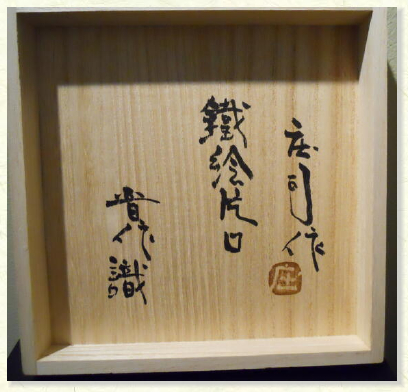 庄司作
庄
鐵絵片口
晋作識